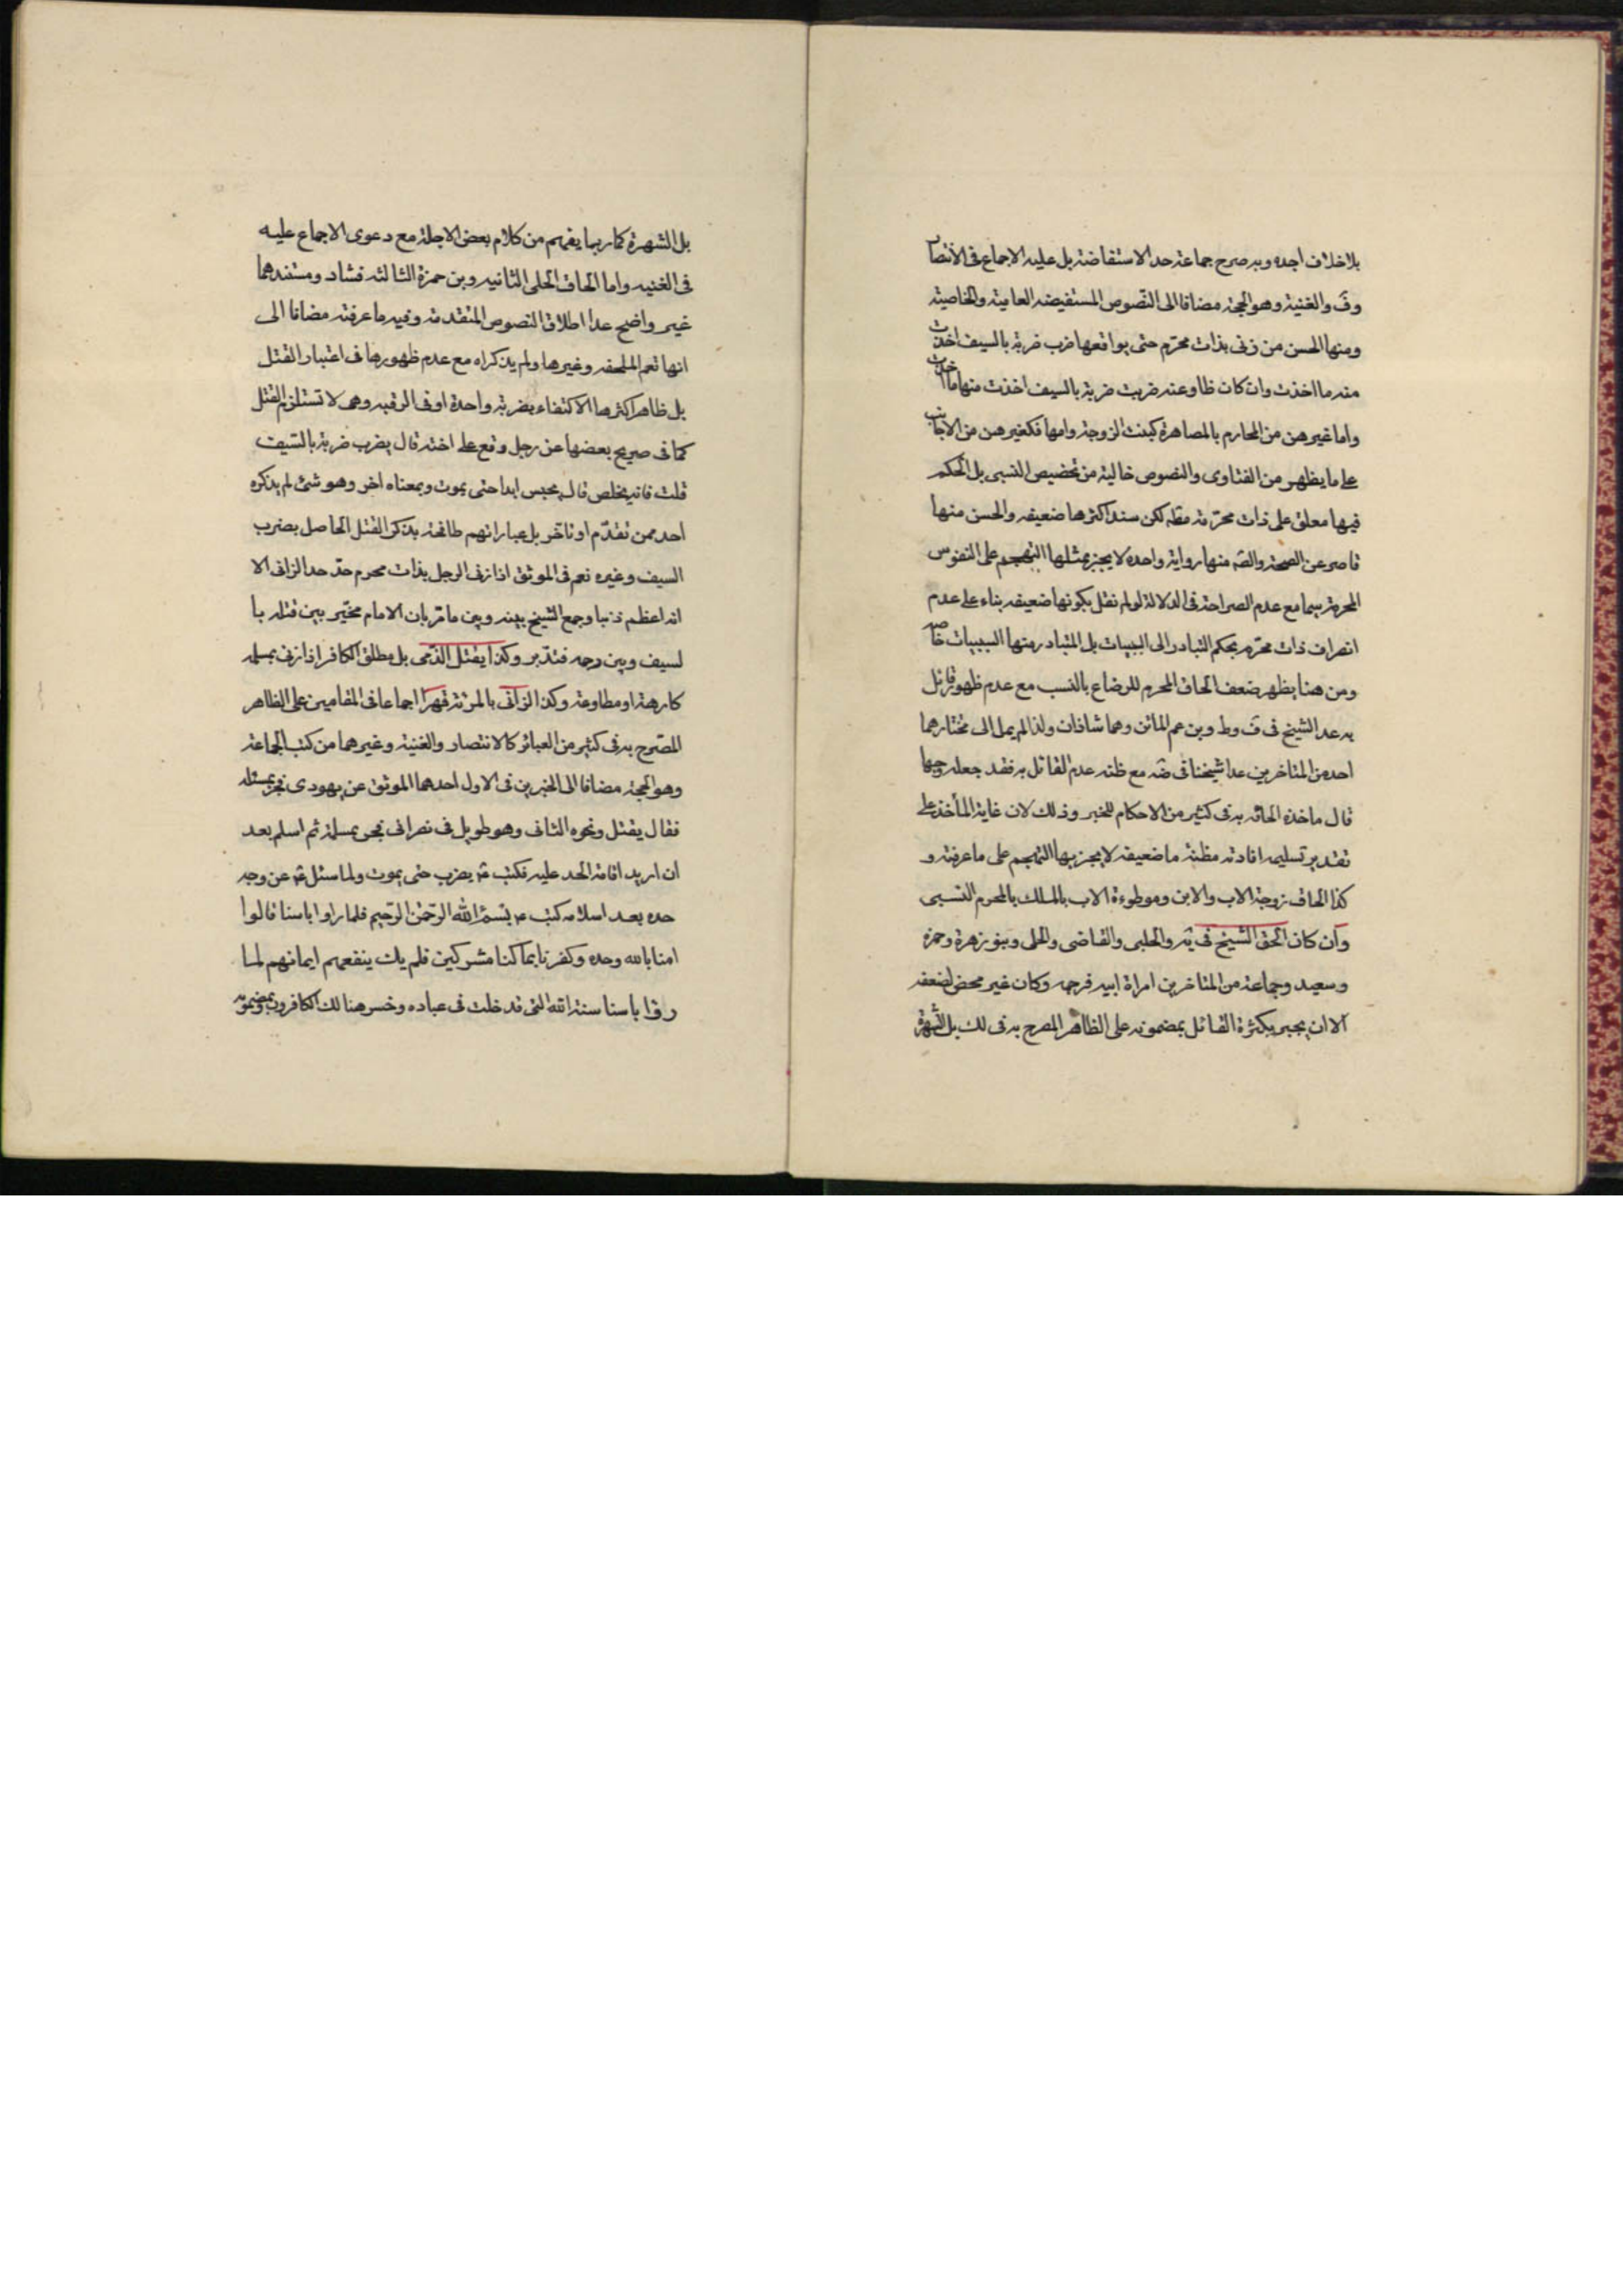 بلا خلاف اجده وبه صرح جماعة حد الاستفاضة بل عليه الاجماع فى الانتصار
وف والغنية وهو الحجة مضافا الى النصوص المستفيضه العامية والخاصية
ومنها الحسن من زنى بذات محرم حتى يواقعها ضرب ضربة بالسيف اخذت
منه ما اخذت وان كان طاوعته ضربت ضربة بالسيف اخذت منها ما اخذت
واما غيرهن من المحارم بالمصاهرة كبنت الزوجة وامها فكغيرهن من الاجانب
على ما يظهر من الفتاوى والنصوص خالية من تخصيص النسبى بل الحكم
فيها معلق على ذات محرمة مطه لكن سند اكثرها ضعيفه والحسن منها
قاصر عن الصحة والصه منها رواية واحده لا يجز بمثلها التهجم على النفوس
المحرمة سيما مع عدم الصراحة فى الدلالة لو لم نقل بكونها ضعيفه بناء على عدم
انصراف ذات محرم بحكم التبادر الى السببيات بل المتبادر منها النسبيات خاصه
ومن هنا يظهر ضعف الحاق المحرم للرضاع بالنسب مع عدم ظهور قائل
به عدا الشيخ فى ف وط وبن عم الماتن وهما شاذان ولذا لم يمل الى مختارهما
احد من المتاخرين عدا شيخنا فى ضه مع ظنه عدم القائل به فقد جعله وجها
قال ماخذه الحاقه به فى كثير من الاحكام للخبر وذلك لان غاية المأخذ على
تقدير تسليمه افادته مظنة ما ضعيفه لا يجز بها التهجم على ما عرفته و
كذا الحاق زوجة الاب والابن وموطوءة الاب بالملك بالمحرم النسبى
وان كان الحق الشيخ فى يه والحلبى والقاضى والحلى وبنو زهرة وحمزه
وسعيد وجماعة من المتاخرين امراة ابيه فرجه وكان غير محض لضعفه
الا ان يجبر بكثرة القائل بمضمونه على الظاهر المصرح به فى لك بل الشهرة
بل الشهرة كما ربما يفهم من كلام بعض الاجلة مع دعوى الاجماع عليه
فى الغنيه واما الحاق الحلى الثانيه وبن حمزة الثالثه فشاد ومستندهما
غير واضح عدا اطلاق النصوص المتقدمة وفيه ما عرفته مضافا الى
انها تعم الملحقه وغيرها ولم يذكراه مع عدم ظهورها فى اعتبار القتل
بل ظاهر اكثرها الاكتفاء بضربة واحدة او فى الرقبه وهى لا تستلزم القتل
كما فى صريح بعضها عن رجل وقع على اخته قال يضرب ضربة بالسيف
قلت فانه يخلص قال يحبس ابدا حتى يموت وبمعناه اخر وهو شئ لم يذكره
احد ممن تقدم او تاخر بل عباراتهم طافحة بذكر القتل الحاصل بضرب
السيف وغيره نعم فى الموثق اذا زنى الرجل بذات محرم حد حد الزانى الا
انه اعظم ذنبا وجمع الشيخ بينه وبين ما مر بان الامام مخير بين قتله با
لسيف وبين رجمه فتدبر وكذا يقتل الذمى بل مطلق الكافر اذا زنى بمسلمه
كارهة او مطاوعة وكذا الزانى بالمرئة قهرا اجماعا فى المقامين على الظاهر
المصرح به فى كثير من العبائر كالانتصار والغنية وغيرهما من كتب الجماعة
وهو الحجة مضافا الى الخبرين فى الاول احدهما الموثق عن يهودى فجر بمسلمه
فقال يقتل ونحوه الثانى وهو طويل فى نصرانى فجر بمسلمة ثم اسلم بعد
ان اريد اقامة الحد عليه فكتب ع يضرب حتى يموت ولما سئل ع عن وجه
حده بعد اسلامه كتب ع بسم الله الرحمن الرحيم فلما راوا باسنا قالوا
امنا بالله وحده وكفرنا بما كنا مشركين فلم يك ينفعهم ايمانهم لما
روا باسنا سنة الله التى قد خلت فى عباده وخسر هنالك الكافرون